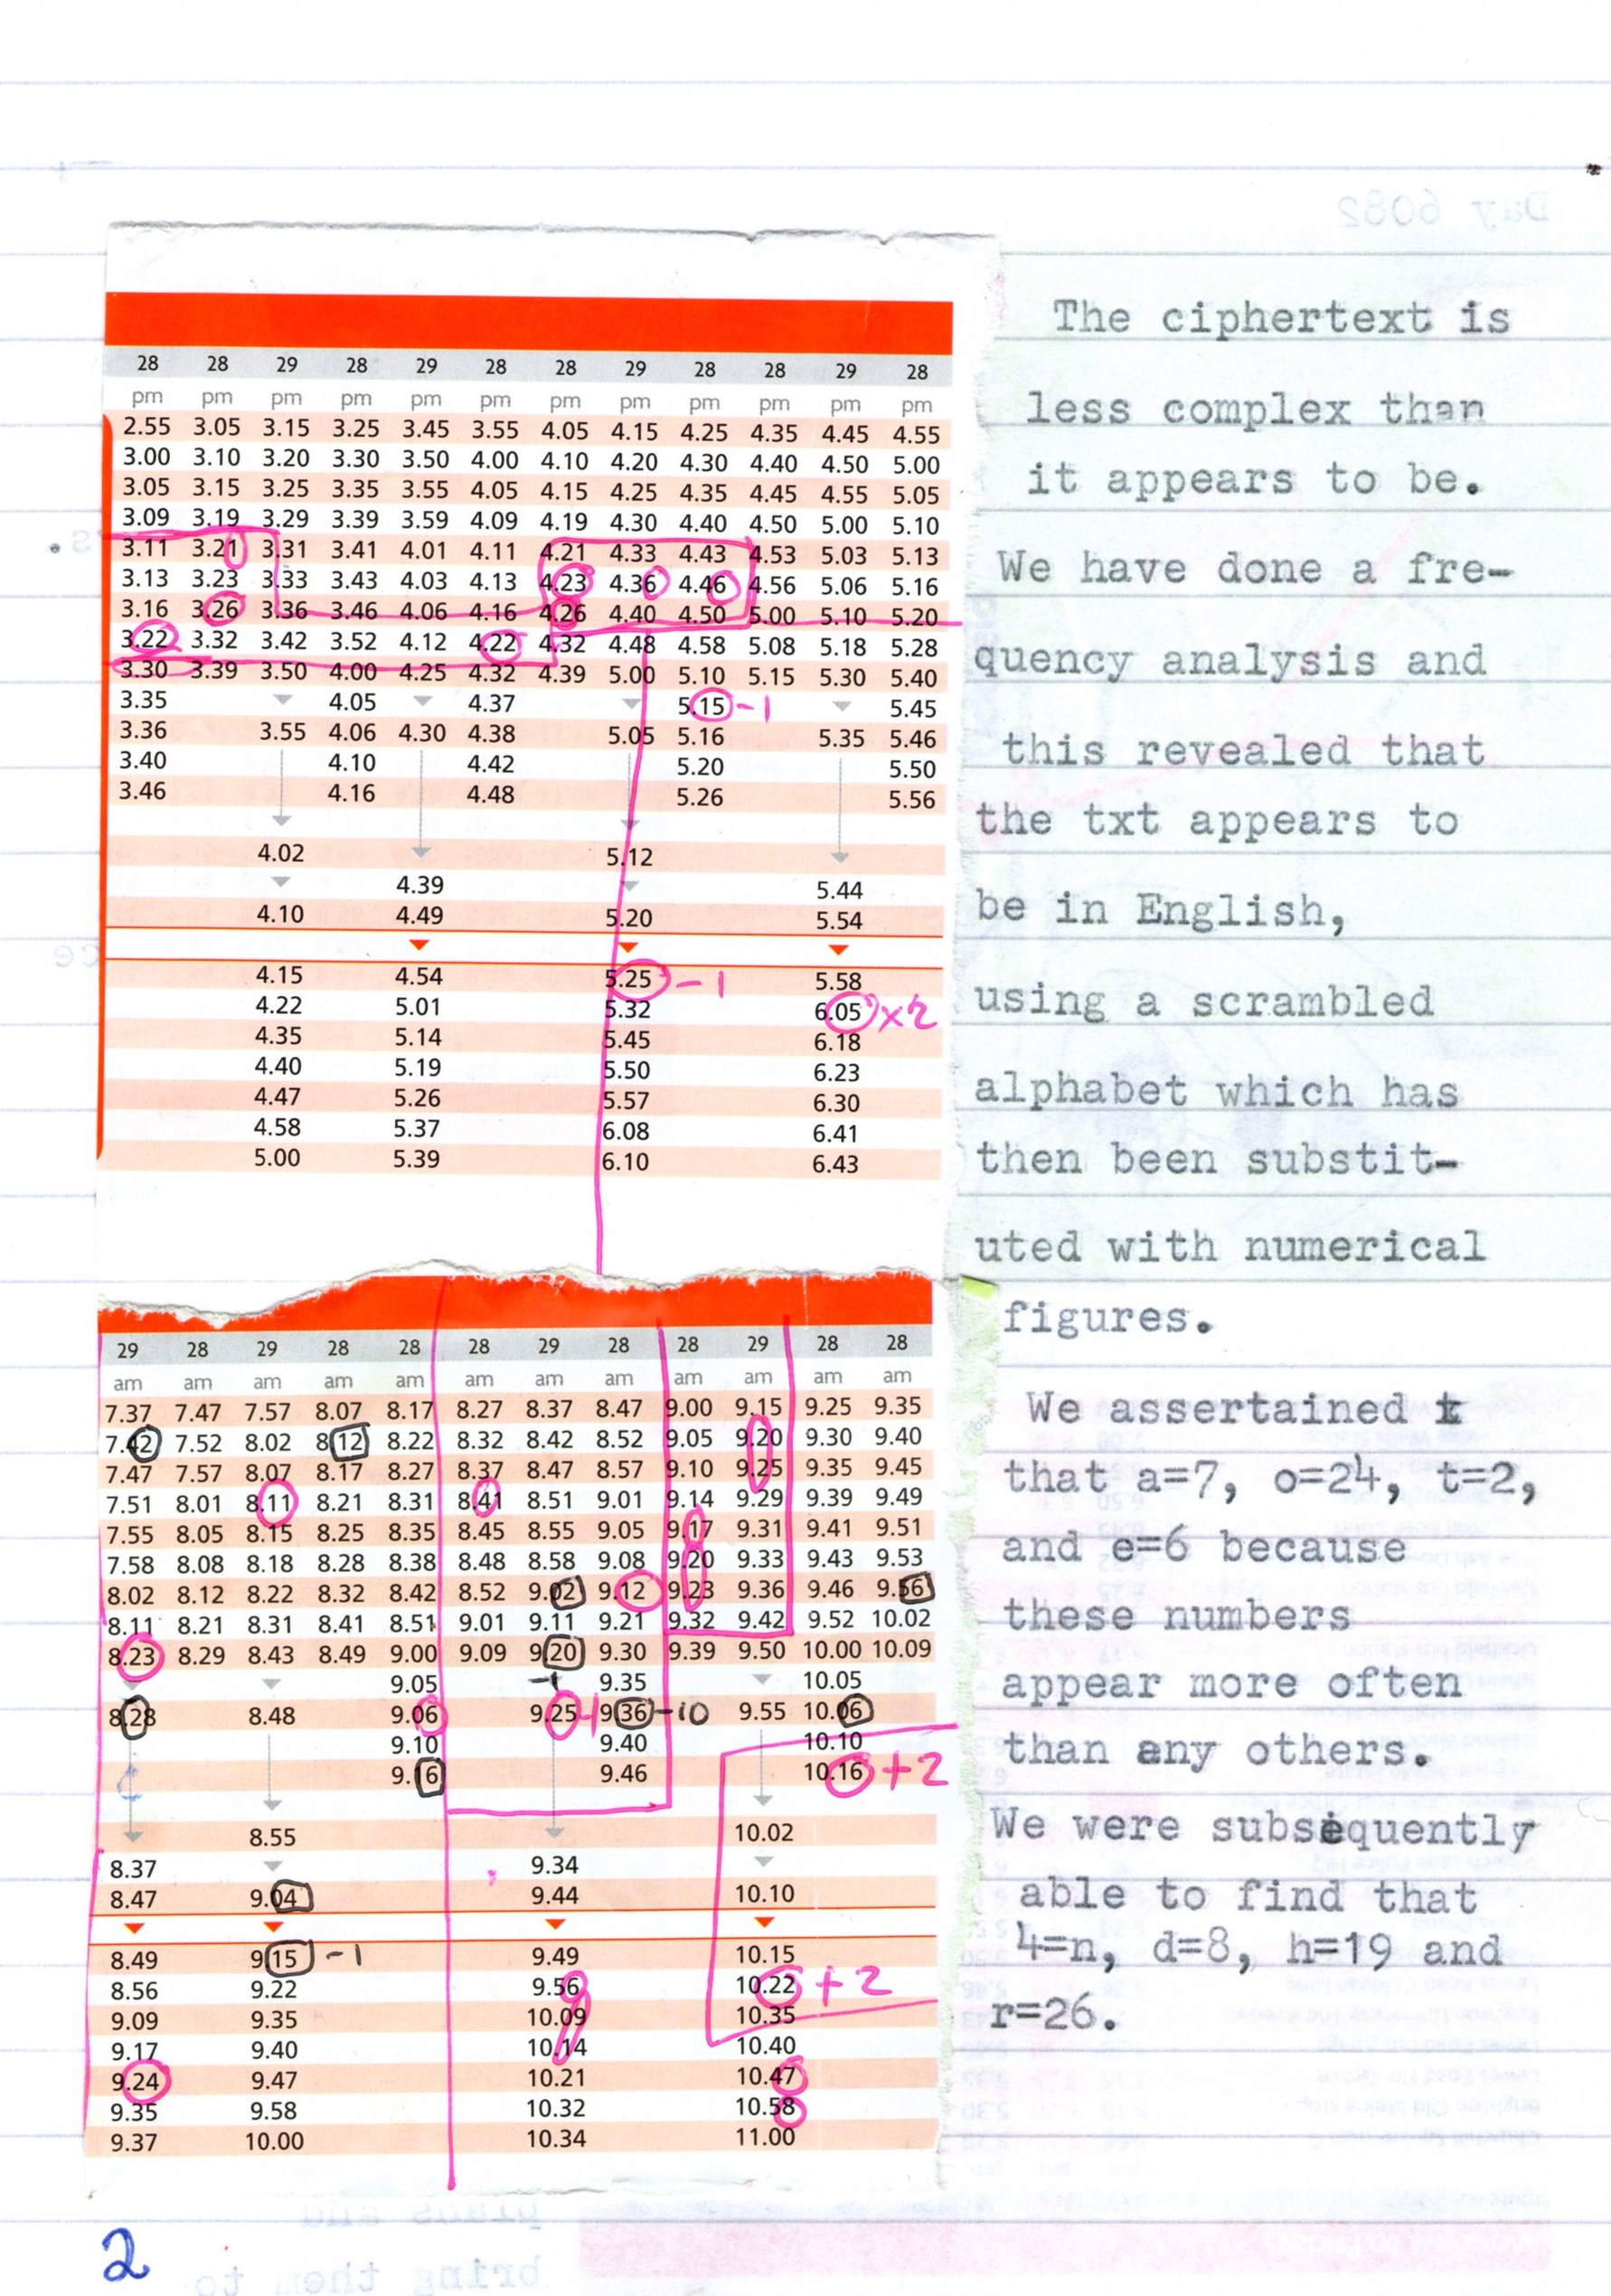 28 28 29 28 29 28 28 29 28 28 29 28
pm pm pm pm pm pm pm pm pm pm pm pm
2.55 3.05 3.15 3.25 3.45 3.55 4.05 4.15 4.25 4.35 4.45 4.55
3.00 3.10 3.20 3.30 3.50 4.00 4.10 4.20 4.30 4.40 4.50 5.00
3.05 3.15 3.25 3.35 3.55 4.05 4.15 4.25 4.35 4.45 4.55 5.05
3.09 3.19 3.29 3.39 3.59 4.09 4.19 4.30 4.40 4.50 5.00 5.10
3.11 3.21 3.31 3.41 4.01 4.11 4.21 4.33 4.43 4.53 5.03 5.13
3.13 3.23 3.33 3.43 4.03 4.13 4.23 4.36 4.46 4.56 5.06 5.16
3.16 3.26 3.36 3.46 4.06 4.16 4.26 4.40 4.50 5.00 5.10 5.20
3.22 3.32 3.42 3.52 4.12 4.22 4.32 4.48 4.58 5.08 5.18 5.28
3.30 3.39 3.50 4.00 4.25 4.32 4.39 5.00 5.10 5.15 5.30 5.40
3.35 4.05 4.37 5.15 -1 5.45
3.36 3.55 4.06 4.30 4.38 5.05 5.16 5.35 5.46
3.40 4.10 4.42 5.20 5.50
3.46 4.16 4.48 5.26 5.56
4.02 5.12
4.39 5.44
4.10 4.49 5.20 5.54
4.15 4.54 5.25 -1 5.58
4.22 5.01 5.32 6.05 x2
4.35 5.14 5.45 6.18
4.40 5.19 5.50 6.23
4.47 5.26 5.57 6.30
4.58 5.37 6.08 6.41
5.00 5.39 6.10 6.43
29 28 29 28 28 28 29 28 28 29 28 28
am am am am am am am am am am am am
7.37 7.47 7.57 8.07 8.17 8.27 8.37 8.47 9.00 9.15 9.25 9.35
7.42 7.52 8.02 8.12 8.22 8.32 8.42 8.52 9.05 9.20 9.30 9.40
7.47 7.57 8.07 8.17 8.27 8.37 8.47 8.57 9.10 9.25 9.35 9.45
7.51 8.01 8.11 8.21 8.31 8.41 8.51 9.01 9.14 9.29 9.39 9.49
7.55 8.05 8.15 8.25 8.35 8.45 8.55 9.05 9.17 9.31 9.41 9.51
7.58 8.08 8.18 8.28 8.38 8.48 8.58 9.08 9.20 9.33 9.43 9.53
8.02 8.12 8.22 8.32 8.42 8.52 9.02 9.12 9.23 9.36 9.46 9.56
8.11 8.21 8.31 8.41 8.51 9.01 9.11 9.21 9.32 9.42 9.52 10.02
8.23 8.29 8.43 8.49 9.00 9.09 9.20 9.30 9.39 9.50 10.00 10.09
9.05 -1 9.35 10.05
8.28 8.48 9.06 9.25 -1 9.36 -10 9.55 10.06
9.10 9.40 10.10
9.16 9.46 10.16 +2
8.55 10.02
8.37 9.34
8.47 9.04 9.44 10.10
8.49 9.15 -1 9.49 10.15
8.56 9.22 9.56 10.22 +2
9.09 9.35 10.09 10.35
9.17 9.40 10.14 10.40
9.24 9.47 10.21 10.47
9.35 9.58 10.32 10.58
9.37 10.00 10.34 11.00
2
The ciphertext is
less complex than
it appears to be.
We have done a fre-
quency analysis and
this revealed that
the txt appears to
be in English,
using a scrambled
alphabet which has
then been substit-
uted with numerical
figures.
We assertained t
that a=7, o=24, t=2,
and e=6 because
these numbers
appear more often
than any others.
We were subsequently
able to find that
4=n, d=8, h=19 and
r=26.
Day 6082